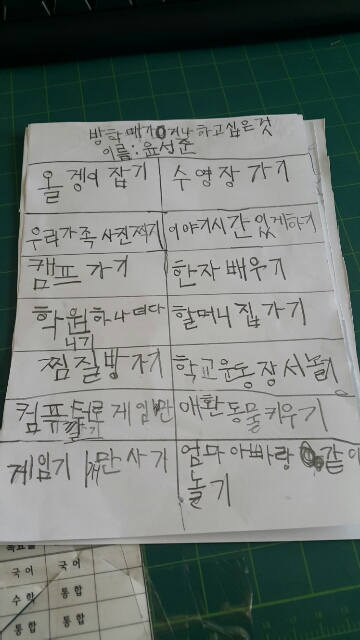 방학 때 가거나 하고 싶은 것
이름: 윤성준
올 젱이 잡기
수영장 가기
우리가족 사진찍기
이야기시간 있게하기
캠프 가기
한자 배우기
학원하나 더 다
니기
할머니 집 가기
찜질방 가기
학교운동장서 놀기
컴퓨터로 게임만
깔기
애완동물키우기
게임기 만 사기
엄마 아빠랑 같이
놀기
국어 국어
수학 통합
통합 통합